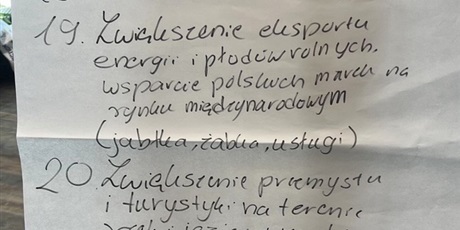 19. Zwiększenie eksportu
energii i płodów rolnych.
wsparcie polskich marek na
rynku międzynarodowym
(jabłka, żabka, usługi)
20. Zwiększenie przemysłu
i turystyki na terenie